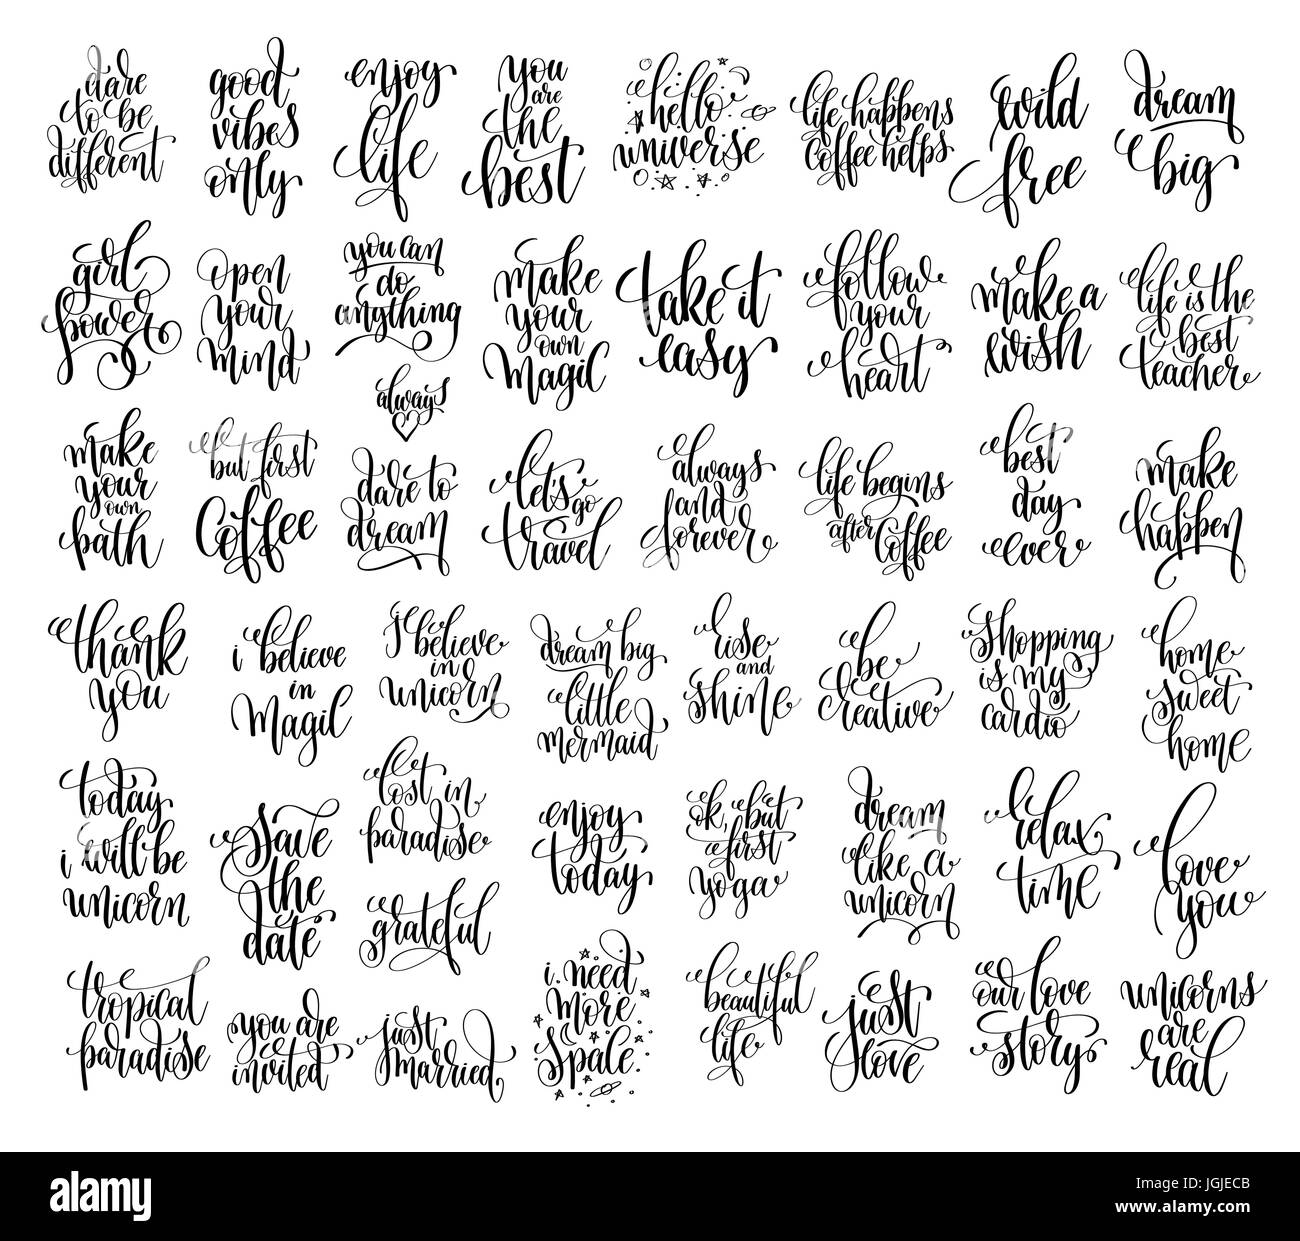 dare
to be
different
good
vibes
only
enjoy
life
you
are
the
best
hello
universe
life happens
coffee helps
wild
free
dream
big
girl
power
open
your
mind
you can
do
anything
always
make
your
own
magic
take it
easy
follow
your
heart
make a
wish
life is the
best
teacher
make
your
own
path
but first
coffee
dare to
dream
let's
go
travel
always
and
forever
life begins
after coffee
best
day
ever
make
happen
thank
you
i believe
in
magic
I believe
in
unicorn
dream big
little
mermaid
rise
and
shine
be
creative
shopping
is my
cardio
home
sweet
home
today
i will be
unicorn
save
the
date
lost in
paradise
grateful
enjoy
today
ok, but
first
yoga
dream
like a
unicorn
relax
time
love
you
tropical
paradise
you are
invited
just
married
i need
more
space
beautiful
life
just
love
our love
story
unicorns
are
real
a alamy stock photo
alamy
Image ID: JGJECB
www.alamy.com